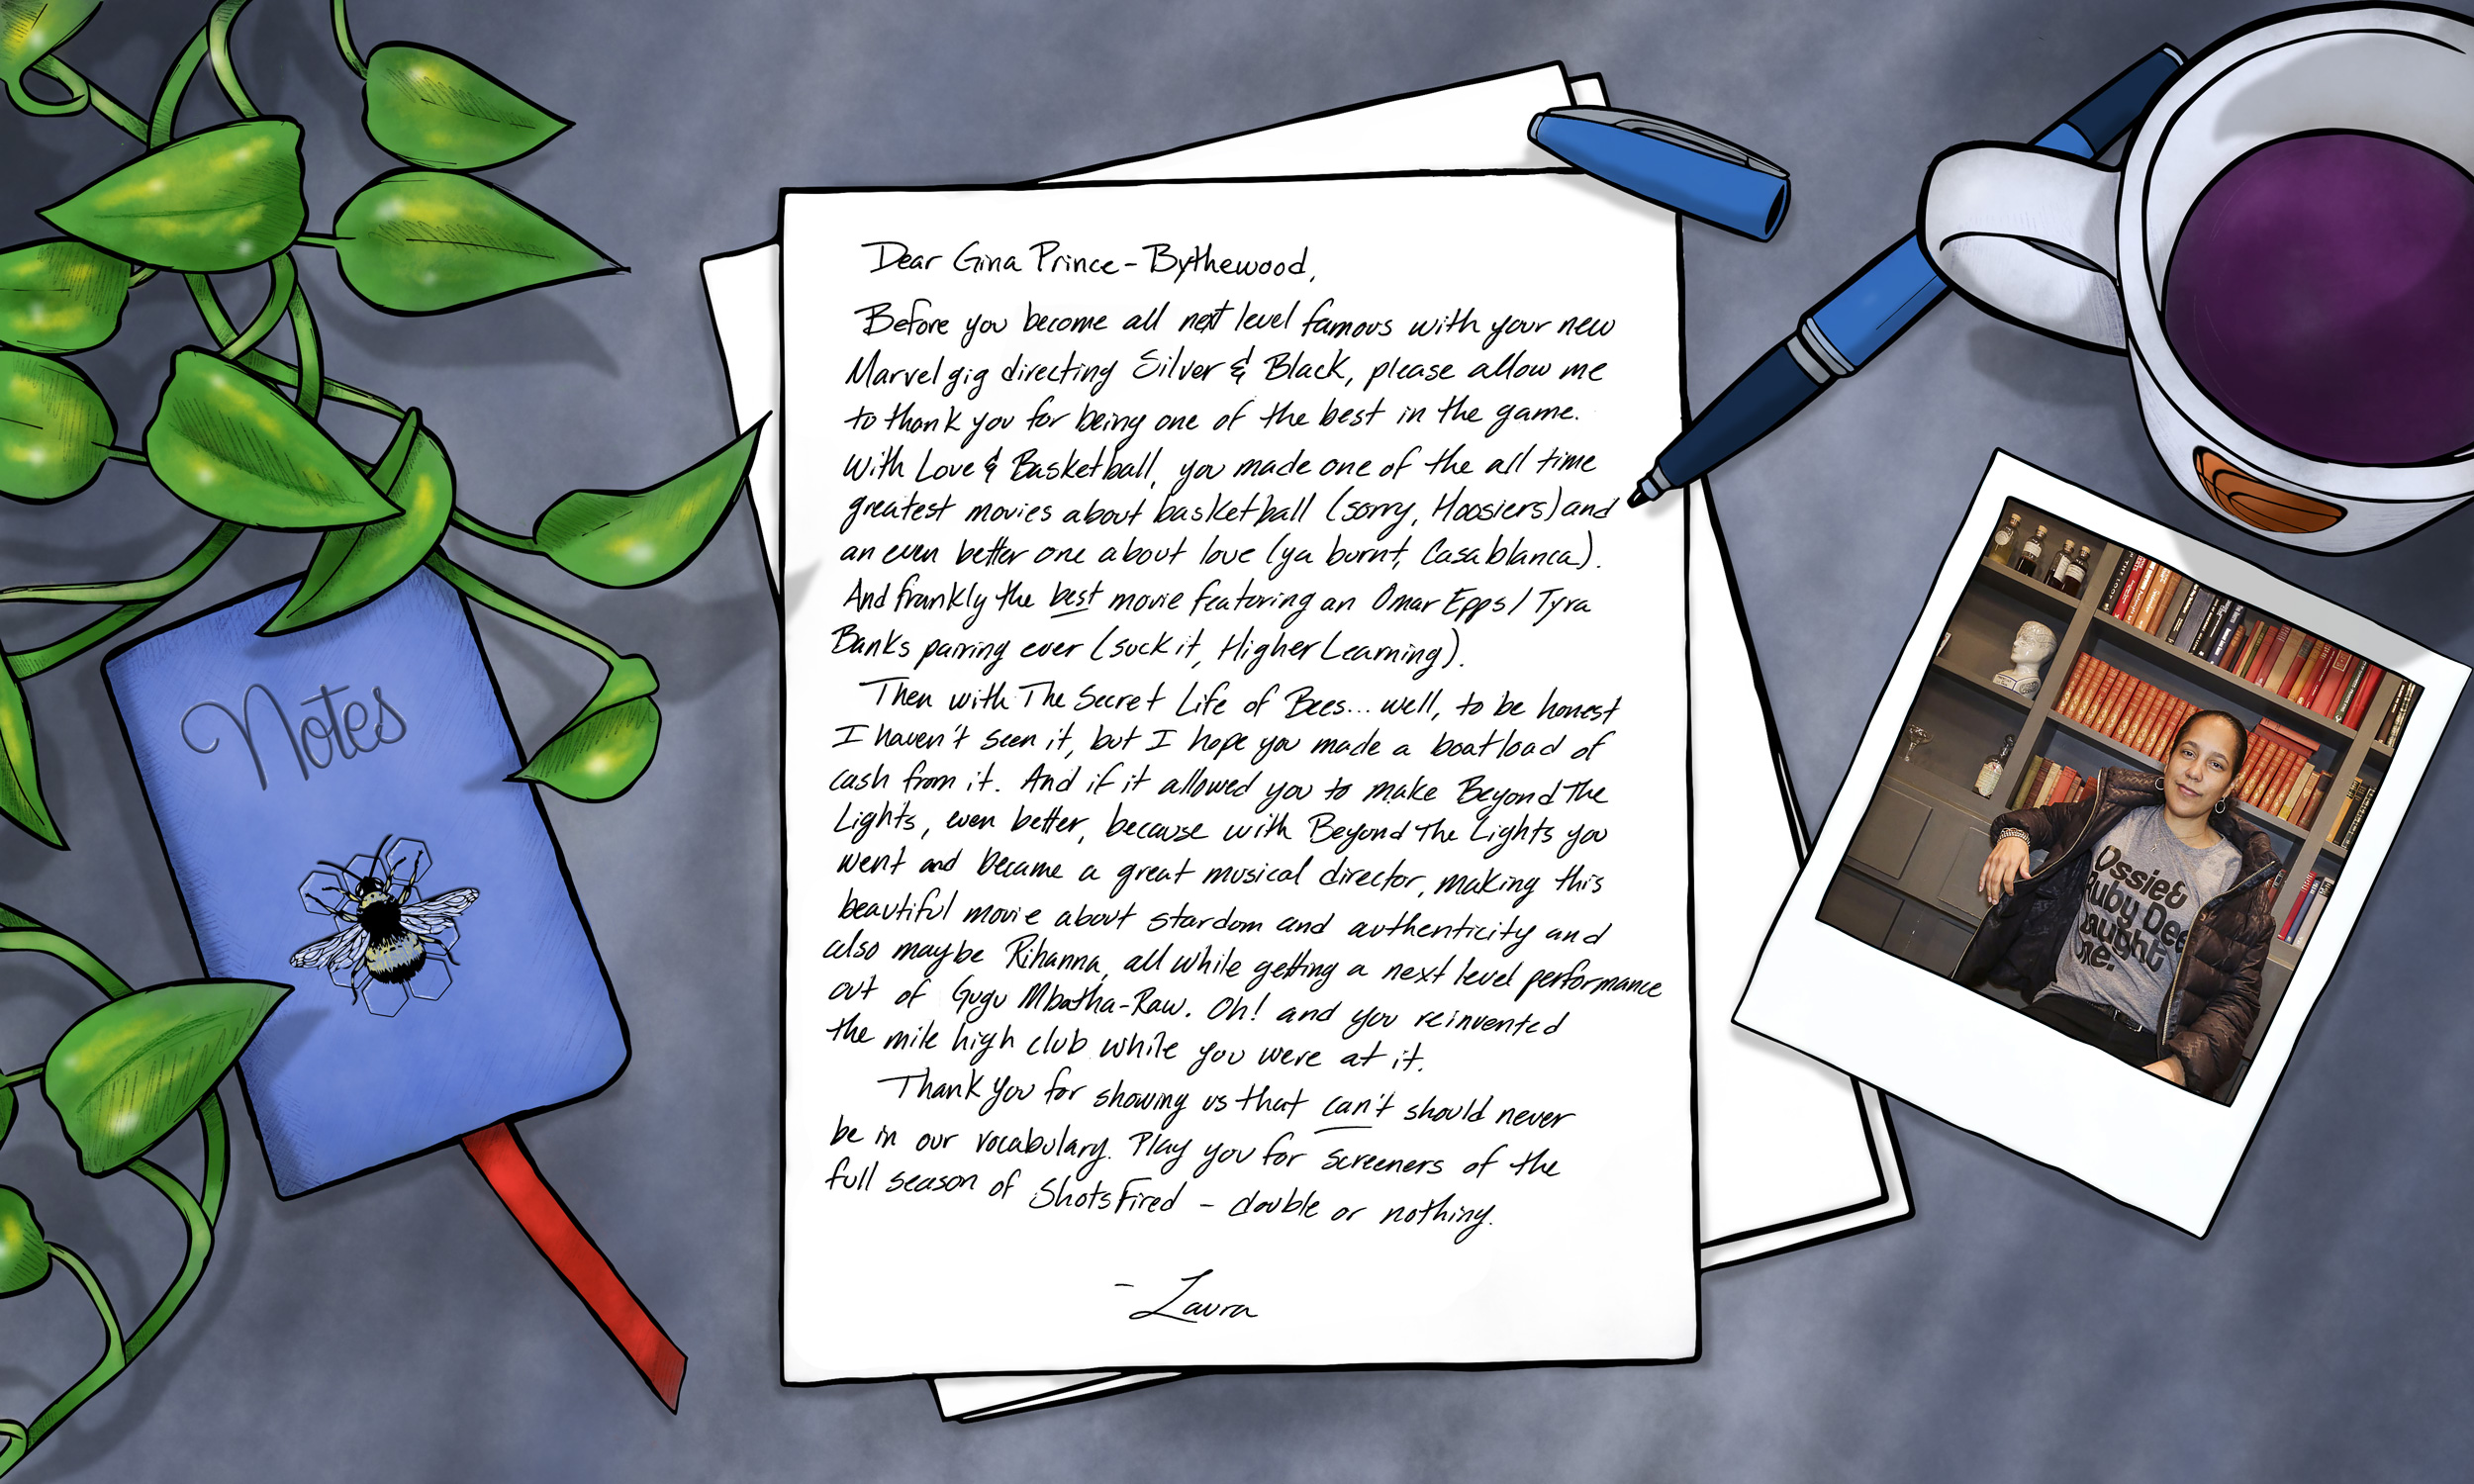 Dear Gina Prince-Bythewood,
Before you become all next level famous with your new
Marvel gig directing Silver & Black, please allow me
to thank you for being one of the best in the game.
With Love & Basketball, you made one of the all time
greatest movies about basketball (sorry, Hoosiers) and
an even better one about love (ya burnt, Casablanca).
And frankly the best movie featuring an Omar Epps/Tyra
Banks pairing ever (suck it, Higher Learning).
Then with The Secret Life of Bees... well, to be honest
I haven't seen it, but I hope you made a boatload of
cash from it. And if it allowed you to make Beyond The
Lights, even better, because with Beyond The Lights you
went and became a great musical director, making this
beautiful movie about stardom and authenticity and
also maybe Rihanna, all while getting a next level performance
out of Gugu Mbatha-Raw. Oh! and you reinvented
the mile high club while you were at it.
Thank you for showing us that can't should never
be in our vocabulary. Play you for screeners of the
full season of Shots Fired - double or nothing.
- Laura
Notes
Ossie&
Ruby Dee
aught
me.